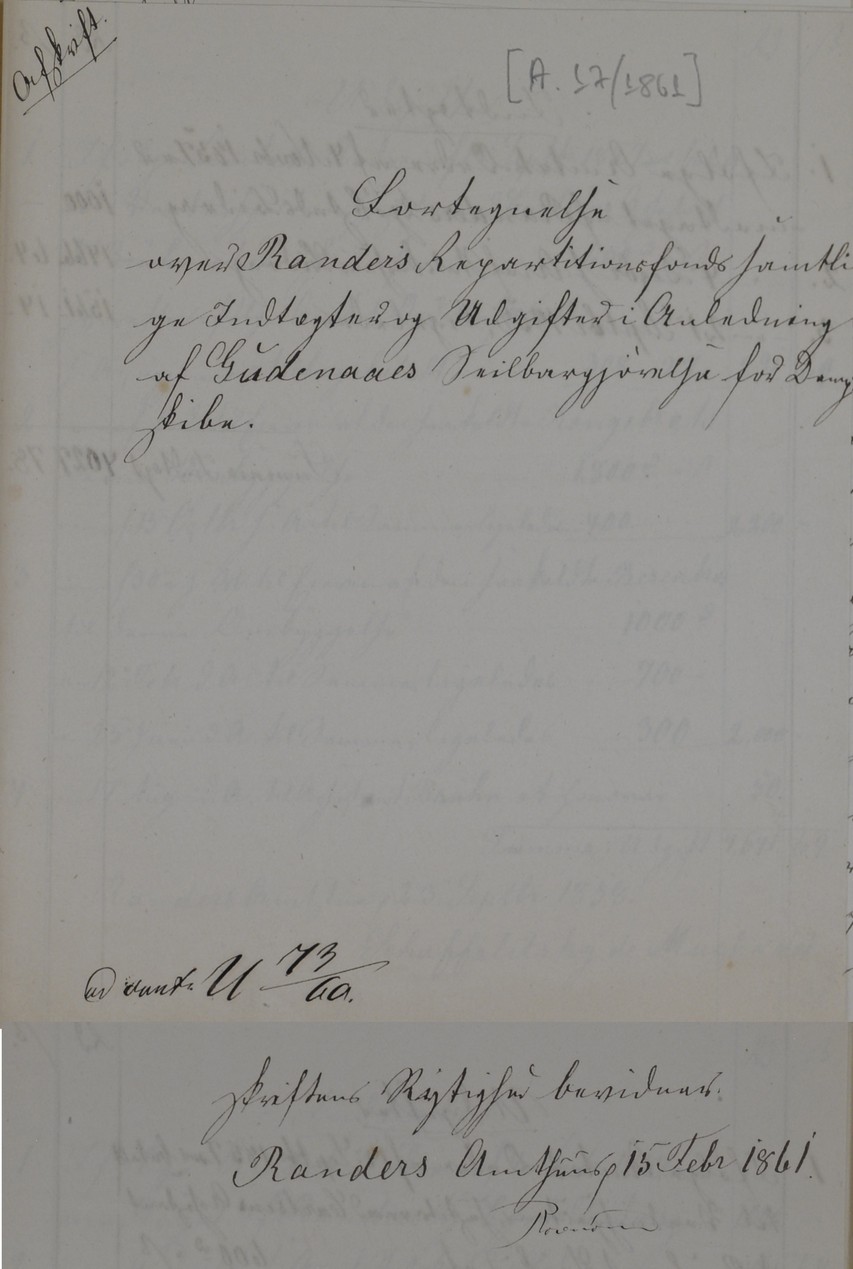 Afskrift.
[A. 17/1861]
Fortegnelse
over Randers Repartitionsfonds samtli
ge Indtægter og Udgifter i Anledning
af Gudenaaes Seilbargjørelse for Damp
skibe.
U 73/60.
skriftens Rigtighed bevidnes.
Randers Amthuus, 15 Febr 1861.